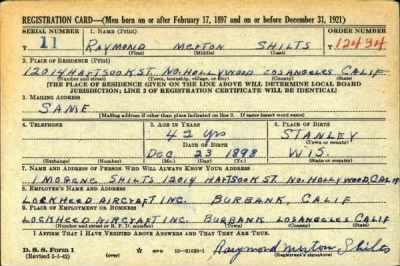 REGISTRATION CARD—(Men born on or after February 17, 1897 and on or before December 31, 1921)
SERIAL NUMBER 1. NAME (Print) ORDER NUMBER
T 11 RAYMOND MERTON SHILTS T12494
(First) (Middle) (Last)
3. PLACE OF RESIDENCE (Print)
12014 HARTSOOK ST. NO. HOLLYWOOD LOS ANGELES CALIF.
(Number and street) (Town, township, village, or city) (County) (State)
[THE PLACE OF RESIDENCE GIVEN ON THE LINE ABOVE WILL DETERMINE LOCAL BOARD
JURISDICTION; LINE 2 OF REGISTRATION CERTIFICATE WILL BE IDENTICAL]
3. MAILING ADDRESS
SAME
[Mailing address if other than place indicated on line 2. If same insert word same]
4. TELEPHONE 5. AGE IN YEARS 6. PLACE OF BIRTH
42 yrs STANLEY
DATE OF BIRTH (Town or county)
DEC 23 1898 WIS.
(Exchange) (Number) (Mo.) (Day) (Yr.) (State or country)
7. NAME AND ADDRESS OF PERSON WHO WILL ALWAYS KNOW YOUR ADDRESS
IMOGENE SHILTS 12014 HARTSOOK ST. NO. HOLLYWOOD, CALIF
8. EMPLOYER'S NAME AND ADDRESS
LOCKHEED AIRCRAFT INC. BURBANK, CALIF
9. PLACE OF EMPLOYMENT OR BUSINESS
LOCKHEED AIRCRAFT INC. BURBANK LOS ANGELES CALIF
(Number and street or R. F. D. number) (Town) (County) (State)
I AFFIRM THAT I HAVE VERIFIED ABOVE ANSWERS AND THAT THEY ARE TRUE.
D. S. S. Form 1
Raymond Merton Shilts